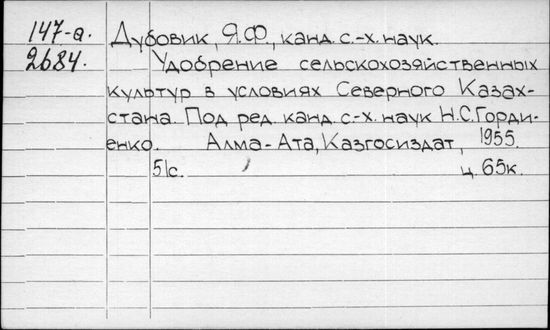 147-а. Дубовик, Я.Ф., канд. с.-х. наук.
2684. Удобрение сельскохозяйственных
культур в условиях Северного Казах-
стана. Под ред. канд. с.-х. наук Н.С. Горди-
енко. Алма-Ата, Казгосиздат, 1955.
51с. ц. 65к.